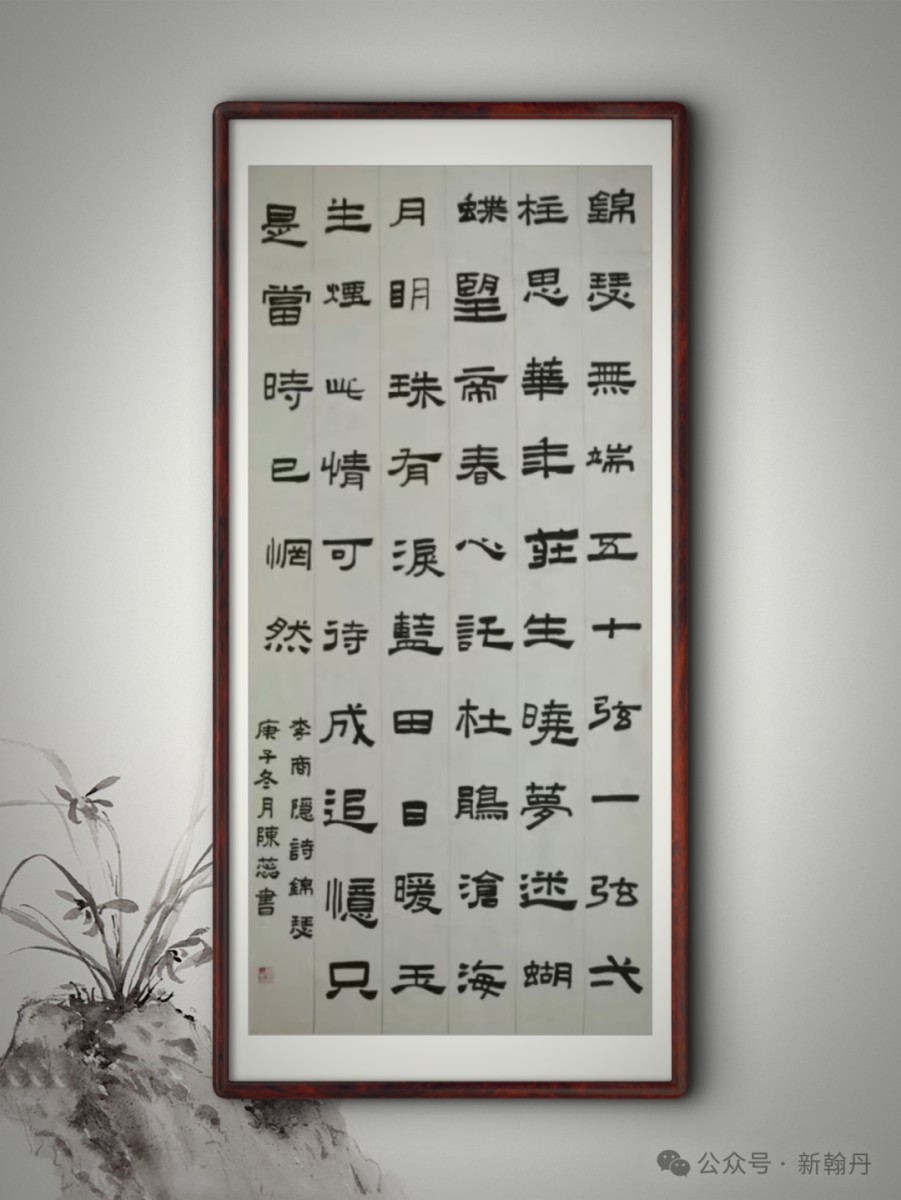 錦瑟無端五十弦一弦弌
柱思華年莊生曉夢迷蝴
蝶望帝春心託杜鵑滄海
月明珠有淚藍田日暖玉
生煙此情可待成追憶只
是當時已惘然
李商隱詩錦瑟
庚子冬月陳蕊書
公众号 · 新翰丹